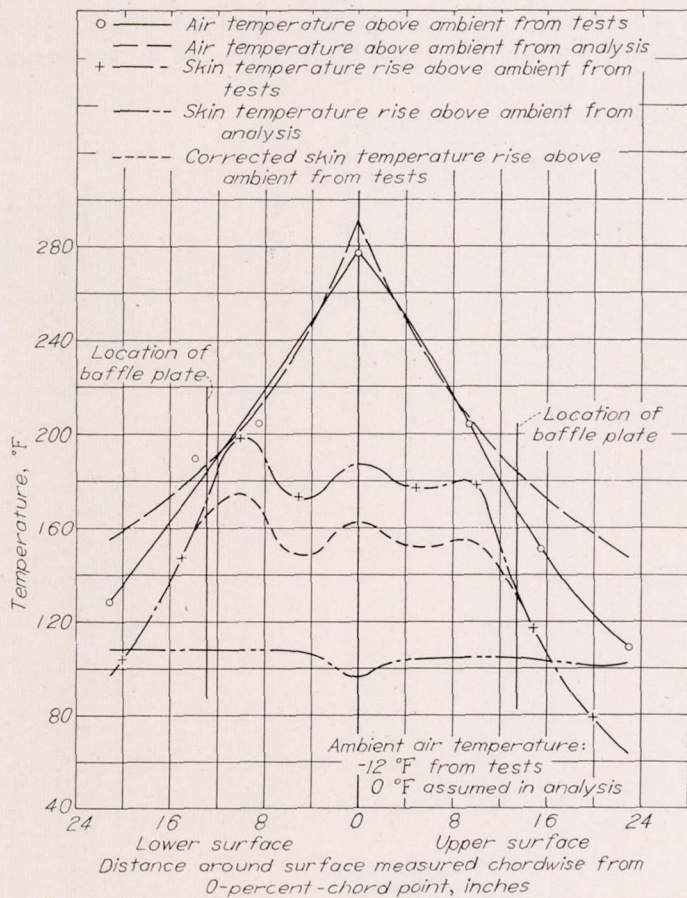 Air temperature above ambient from tests
Air temperature above ambient from analysis
Skin temperature rise above ambient from
tests
Skin temperature rise above ambient from
analysis
Corrected skin temperature rise above
ambient from tests
280
240
200
160
120
80
40
Temperature, °F
Location of
baffle plate
Location of
baffle plate
Ambient air temperature:
-12 °F from tests
0 °F assumed in analysis
24 16 8 0 8 16 24
Lower surface Upper surface
Distance around surface measured chordwise from
0-percent-chord point, inches